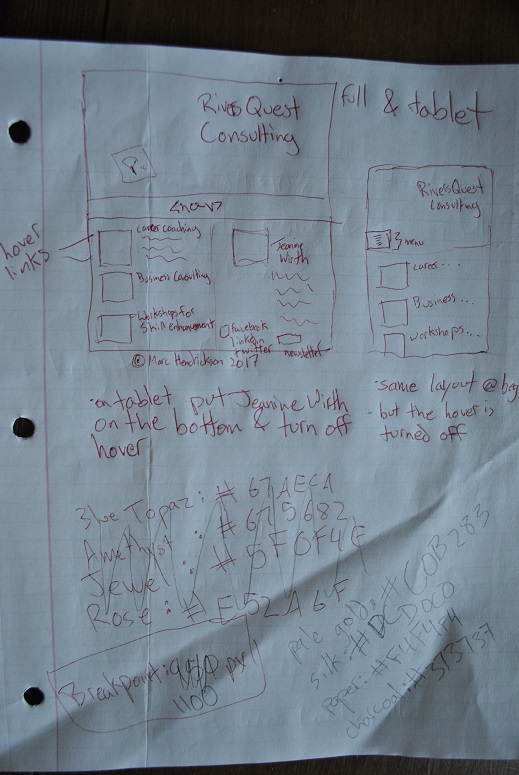 RiversQuest
Consulting
full & tablet
<nav>
hover
links
career coaching
Business Consulting
Workshops for
Skill enhancement
Jeanine
Wirth
Facebook
linkedin
twitter
newsletter
© Marc Hendrickson 2017
RiversQuest
Consulting
menu
career...
Business...
workshops...
·on tablet put Jeanine Wirth
on the bottom & turn off
hover
·same layout @ beg
- but the hover is
turned off
Blue Topaz: # 67AECA
Amethyst: # 675682
Jewel: # 5F6F4E
Rose: # E52A6F
pale gold: #C0B283
silk: #DCD0C0
paper: #F4F4F4
charcoal: #373737
Breakpoint: px
1100